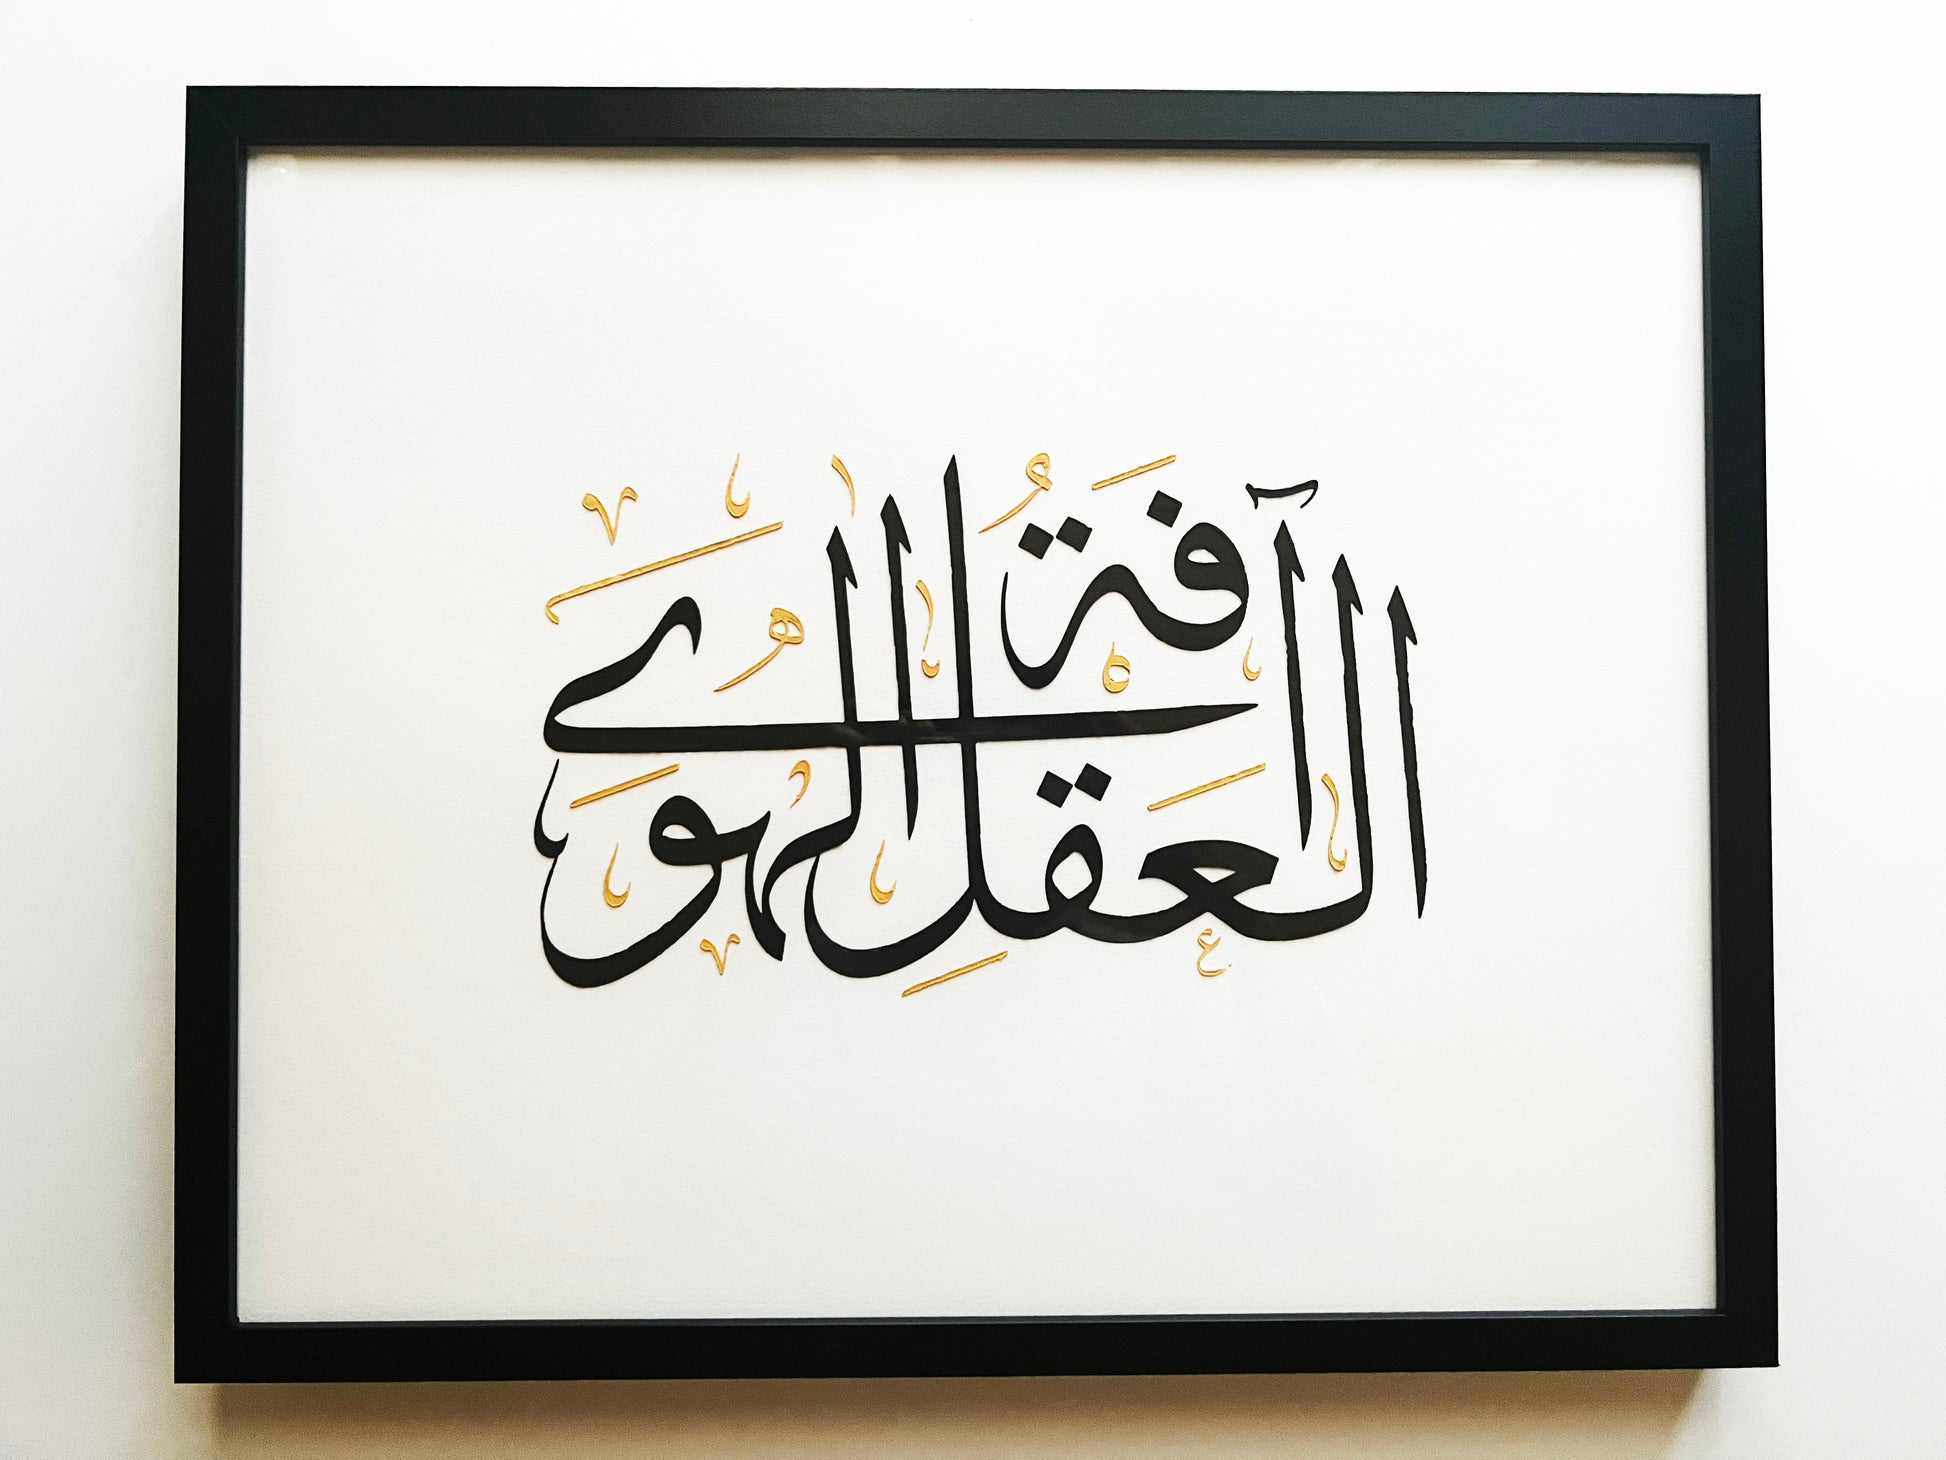 آفَةُ العَقْلِ الهَوَى